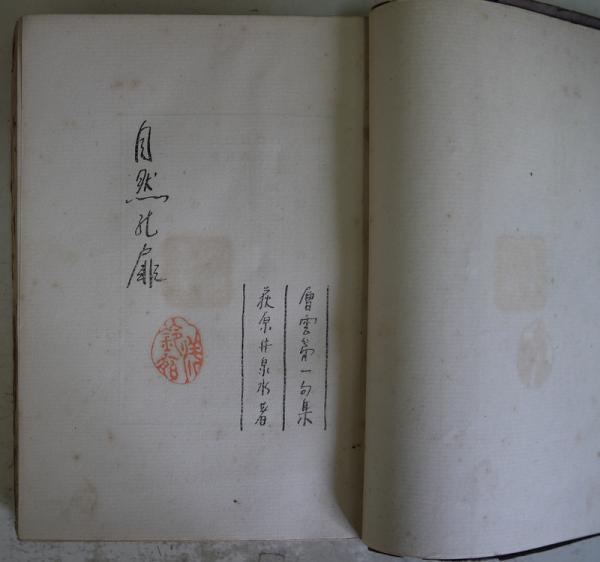 層雲第一句集
荻原井泉水著
自然の扉